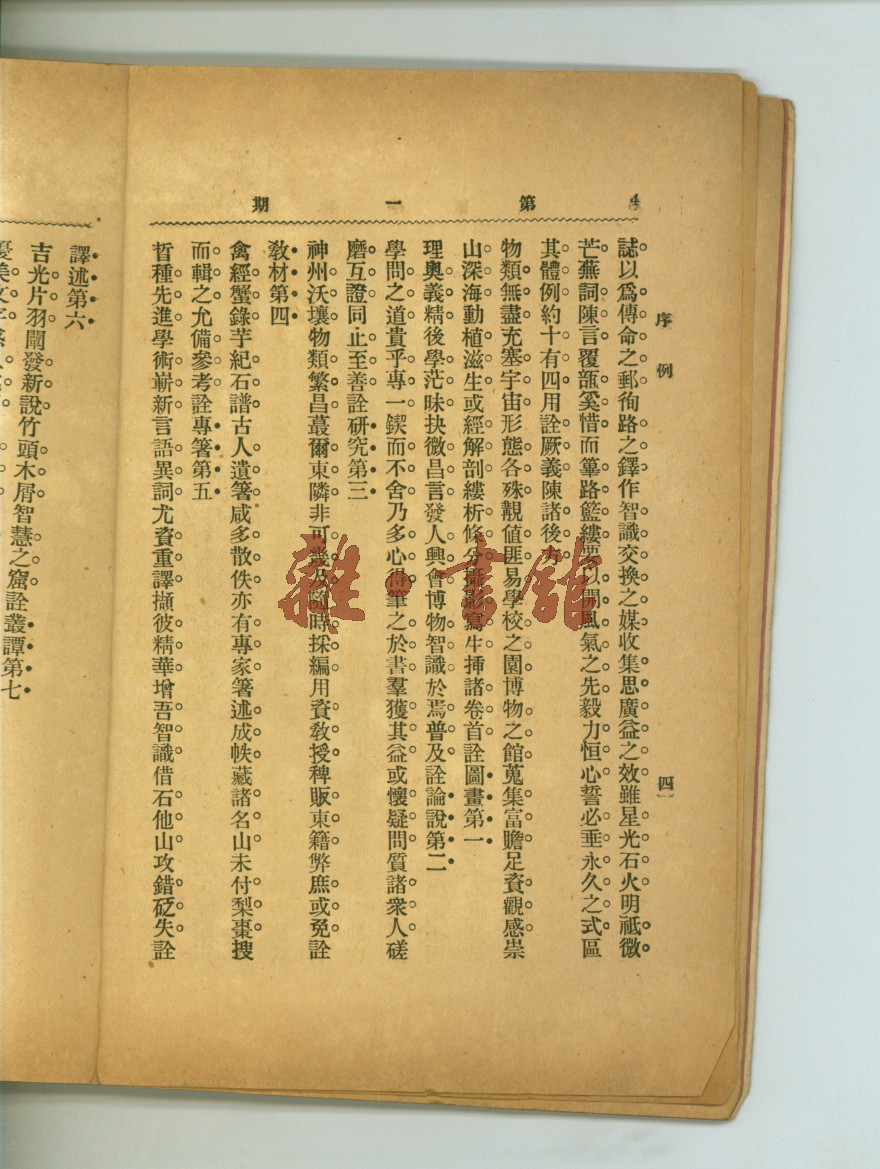 序例
四
4
第一期
誌以爲傳命之郵徇路之鐸作智識交換之媒收集思廣益之效雖星光石火明祗微
芒蕪詞陳言覆瓿奚惜而篳路籃縷要以開風氣之先毅力恒心誓必垂永久之式區
其體例約十有四用詮厥義陳諸後方
物類無盡充塞宇宙形態各殊覯値匪易學校之園博物之館蒐集富贍足資觀感崇
山深海動植滋生或經解剖縷析條分攝影寫生揷諸卷首詮圖畫第一
理奧義精後學茫昧抉微昌言發人興會博物智識於焉普及詮論說第二
學問之道貴乎專一鍥而不舍乃多心得筆之於書羣獲其益或懷疑問質諸衆人磋
磨互證同止至善詮研究第三
神州沃壤物類繁昌蕞爾東隣非可幾及隨時採編用資敎授稗販東籍弊庶或免詮
敎材第四
禽經蟹錄芋紀石譜古人遺箸咸多散佚亦有專家箸述成帙藏諸名山未付梨棗搜
而輯之允備參考詮專箸第五
晳種先進學術嶄新言語異詞尤資重譯擷彼精華增吾智識借石他山攻錯砭失詮
譯述第六
吉光片羽闡發新說竹頭木屑智慧之窟詮叢譚第七
優美文字
雜·書館